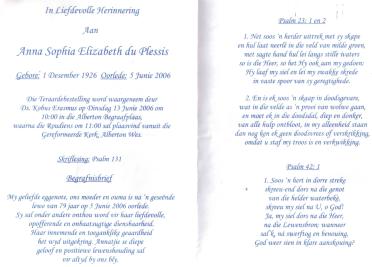 In Liefdevolle Herinnering
Aan
Anna Sophia Elizabeth du Plessis
Gebore: 1 Desember 1926 Oorlede: 5 Junie 2006
Die Teraardebestelling word waargeneem deur
Ds. Kobus Erasmus op Dinsdag 13 Junie 2006 om
10:00 in die Alberton Begraafplaas,
waarna die Roudiens om 11:00 sal plaasvind vanuit die
Gereformeerde Kerk, Alberton Wes.
Skriflesing: Psalm 131
Begrafnisbrief
My geliefde eggenote, ons moeder en ouma is na 'n geseënde
lewe van 79 jaar op 5 Junie 2006 oorlede.
Sy sal onder andere onthou word vir haar liefdevolle,
opofferende en onbaatsugtige diensbaarheid.
Haar innemende en toeganklike geaardheid
het wyd uitgekring. Annatjie se diepe
geloof en positiewe lewenshouding sal
vir altyd by ons bly.
Psalm 23: 1 en 2
1. Net soos 'n herder uittrek met sy skape
en hul laat neerlê in die veld van milde groen,
met sagte hand hul lei langs stille waters
so is die Heer, so het Hy ook aan my gedoen:
Hy laaf my siel en lei my swakke skrede
in vaste spoor van sy geregtighede.
2. En is ek soos 'n skaap in doodsgevare,
wat in die welde as 'n prooi van wolwe gaan,
en moet ek in die doodsdal, diep en donker,
van alle hulp ontbloot, in my alleenheid staan
dan nog ken ek geen doodsvrees of verskrikking,
omdat u staf my troos is en verkwikking.
Psalm 42: 1
1. Soos 'n hert in dorre streke
skreeu-end dors na die genot
van die helder waterbeke,
skreeu my siel na U, o God!
Ja, my siel dors na die Heer,
na die Lewensbron; wanneer
sal ek, ná swerftog en bewening,
God weer sien in klare aanskouing?